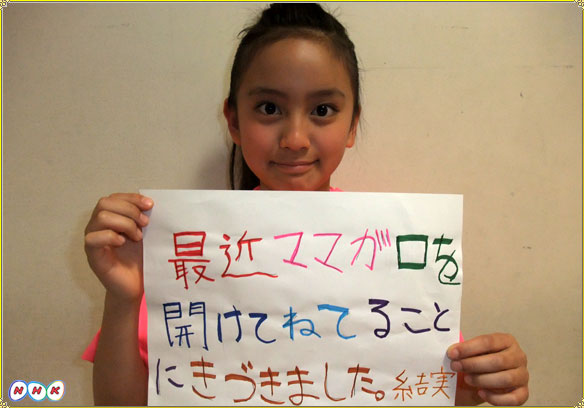 最近ママが口を
開けてねてること
にきづきました。結実
NHK